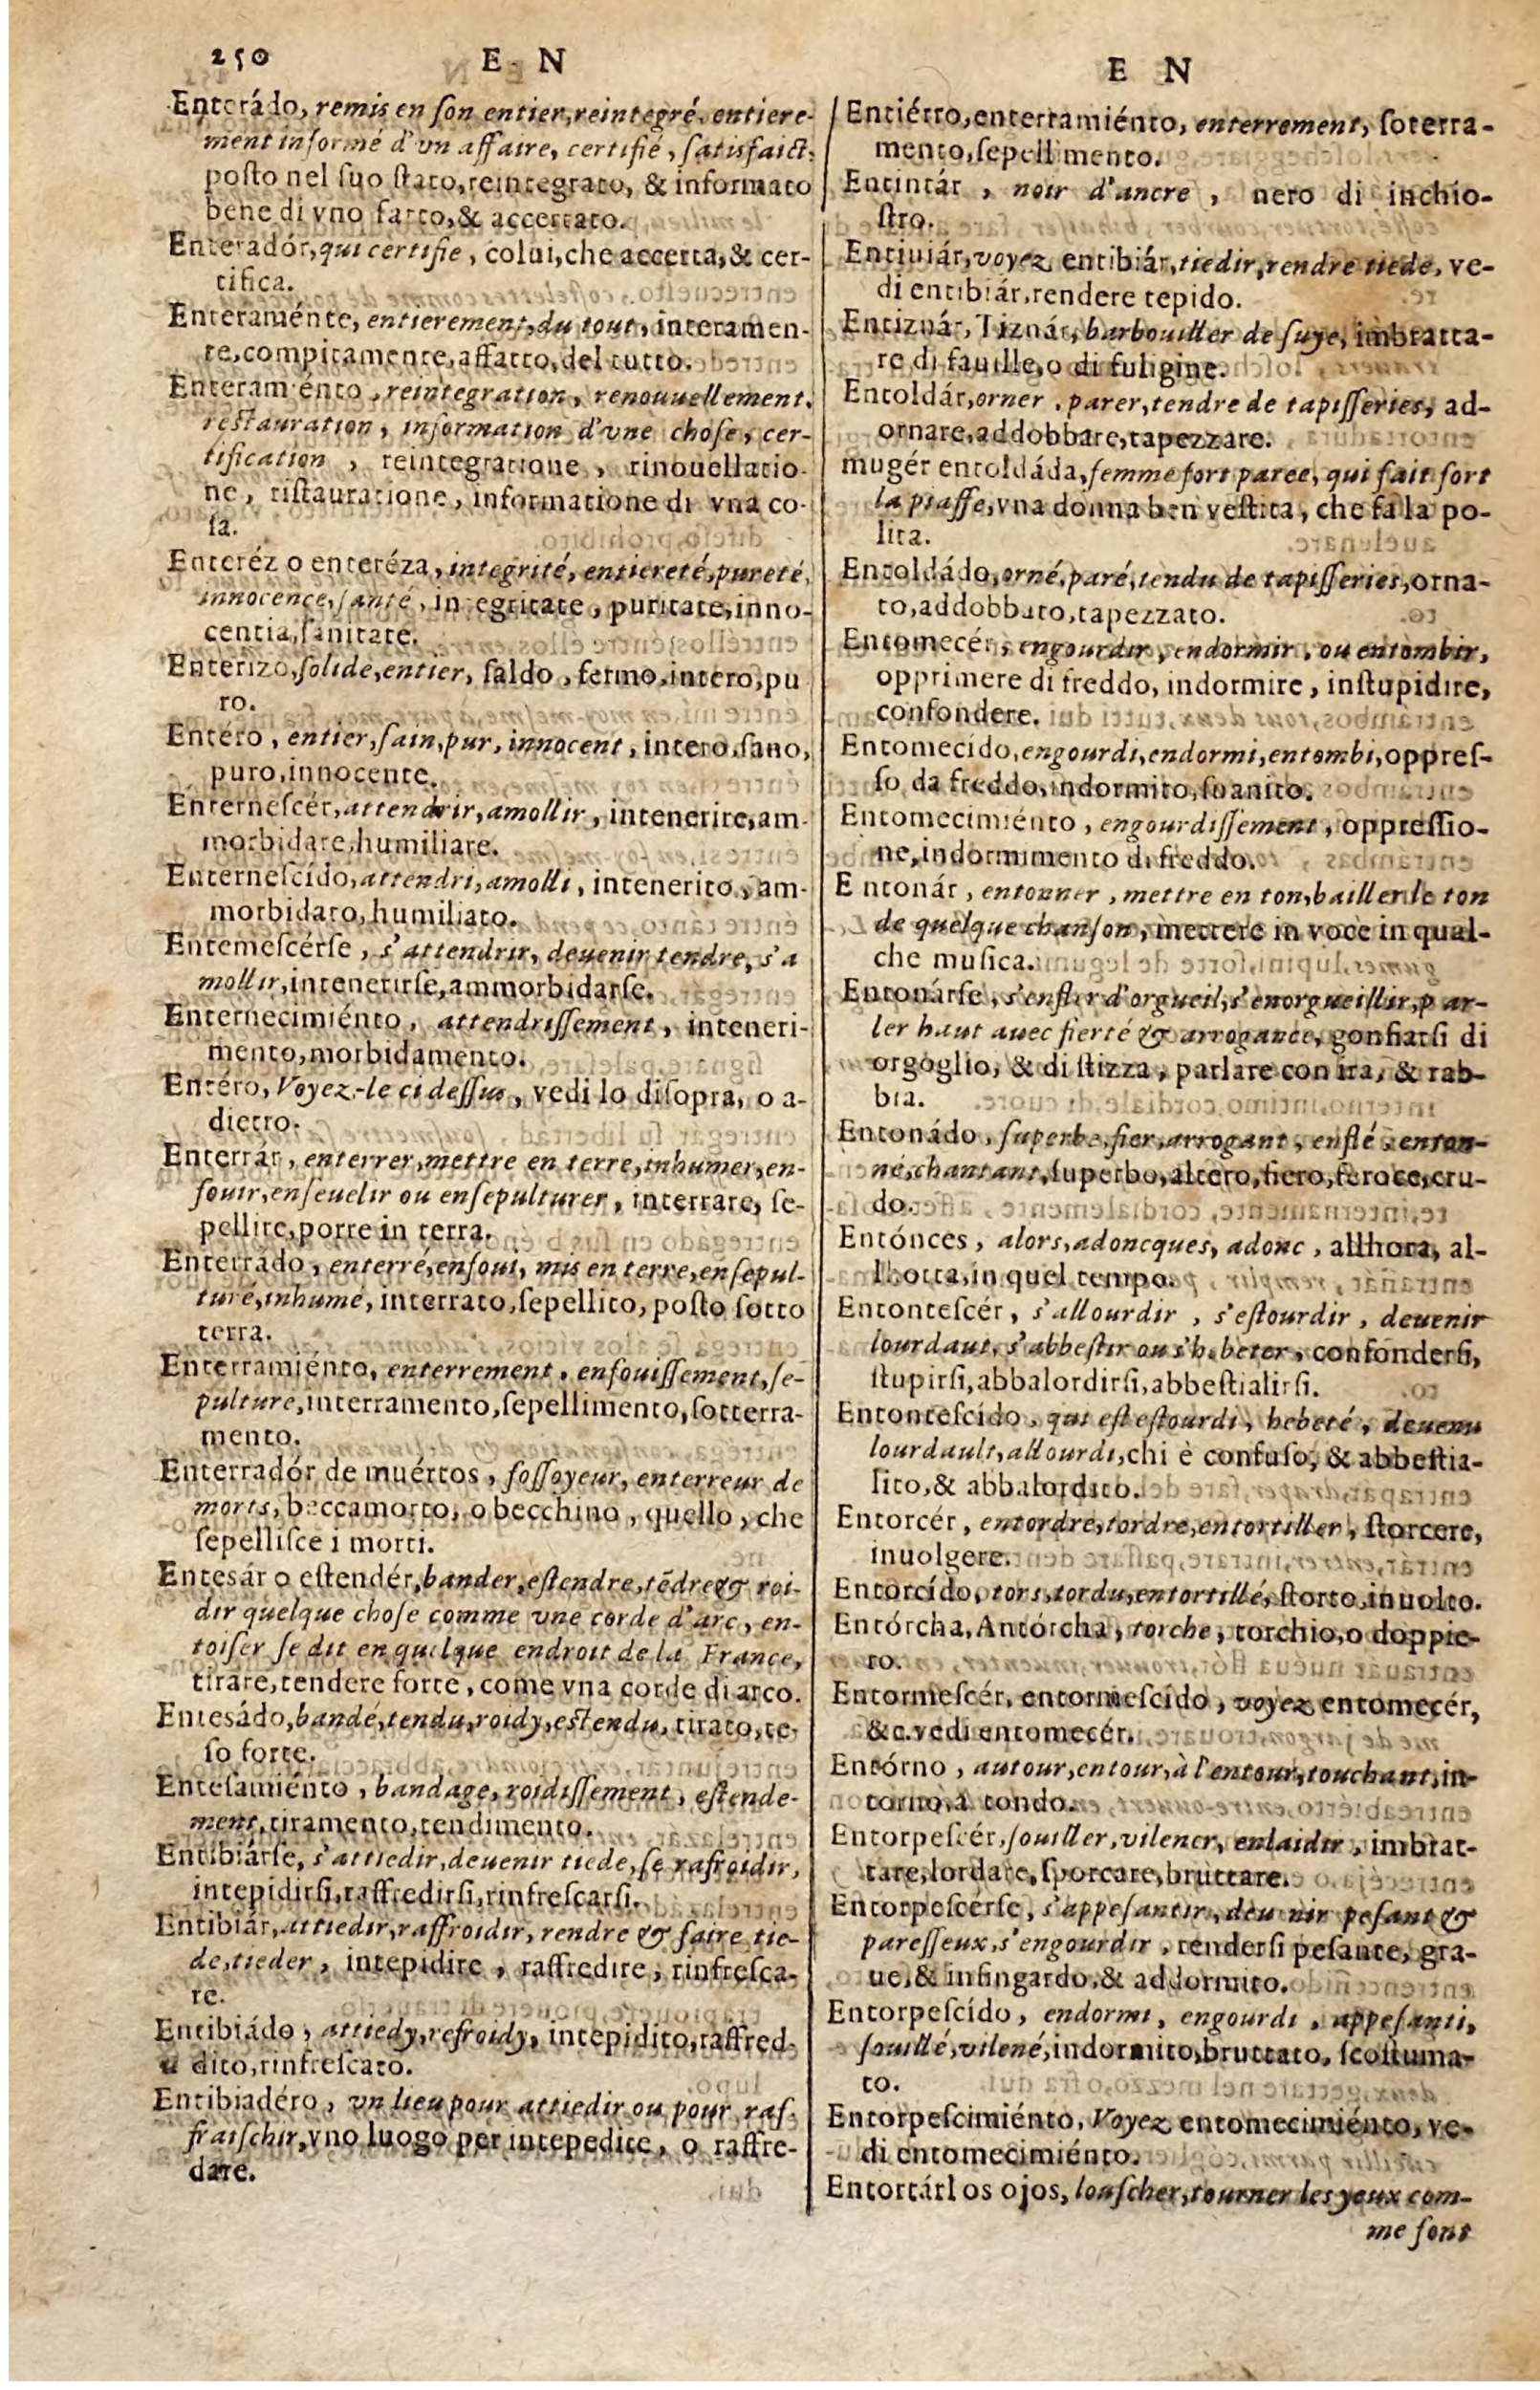 250 E N
Enterádo, remis en ſon entier, reintegré, entiere-
ment informé d'vn affaire, certifié, ſatisfaict,
poſto nel ſuo ſtato, reintegrato, & informato
bene di vno fatto, & accertato.
Enteradór, qui certifie, colui, che accerta, & cer-
tifica.
Enteraménte, entierement, du tout, interamen-
te, compitamente, affatto, del tutto.
Enteramiénto, reintegration, renouuellement,
reſtauration, information d'vne choſe, cer-
tification, reintegratione, rinouellatio-
ne, riſtauratione, informatione di vna co-
ſa.
Enteréz o enteréza, integrité, entiereté, pureté,
innocence, ſanté, integritate, puritate, inno-
centia, ſanitate.
Enterizo, ſolide, entier, ſaldo, fermo, intero, pu
ro.
Entéro, entier, ſain, pur, innocent, intero, ſano,
puro, innocente.
Enterneſcér, attendrir, amollir, intenerire, am-
morbidare, humiliare.
Enterneſcido, attendri, amolli, intenerito, am-
morbidato, humiliato.
Enterneſcérſe, s'attendrir, deuenir tendre, s'a
mollir, intenerirſe, ammorbidarſe.
Enternecimiénto, attendriſſement, inteneri-
mento, morbidamento.
Entéro, Voyez-le ci deſſus, vedi lo diſopra, o a-
dietro.
Enterrár, enterrer, mettre en terre, inhumer, en-
fouir, enſeuelir ou enſepulturer, interrare, ſe-
pellire, porre in terra.
Enterrádo, enterré, enfoui, mis en terre, enſepul-
turé, inhumé, interrato, ſepellito, poſto ſotto
terra.
Enterramiénto, enterrement, enfouiſſement, ſe-
pulture, interramento, ſepellimento, ſotterra-
mento.
Enterradór de muértos, foſſoyeur, enterreur de
morts, beccamorto, o becchino, quello, che
ſepelliſce i morti.
Enteſár o eſtendér, bander, eſtendre, tēdre & roi-
dir quelque choſe comme vne corde d'arc, en-
toiſer ſe dit en quelque endroit de la France,
tirare, tendere forte, come vna corde di arco.
Enteſádo, bandé, tendu, roidy, eſtendu, tirato, te-
ſo forte.
Enteſamiénto, bandage, roidiſſement, eſtende-
ment, tiramento, tendimento.
Entibiárſe, s'attiedir, deuenir tiede, ſe rafroidir,
intepidirſi, raffredirſi, rinfreſcarſi.
Entibiár, attiedir, raffroidir, rendre & faire tie-
de, tieder, intepidire, raffredire, rinfreſca-
re.
Entibiádo, attiedy, refroidy, intepidito, raffred-
dito, rinfreſcato.
Entibiadéro, vn lieu pour attiedir ou pour raf-
fraiſchir, vno luogo per intepedire, o raffre-
dare.
E N
Entiérro, enterramiénto, enterrement, ſoterra-
mento, ſepellimento.
Entintár, noir d'ancre, nero di inchio-
ſtro.
Entiuiár, voyez entibiár, tiedir, rendre tiede, ve-
di entibiár, rendere tepido.
Entiznár, Tiznár, barbouiller de ſuye, imbratta-
re di fauille, o di fuligine.
Entoldár, orner, parer, tendre de tapiſſeries, ad-
ornare, addobbare, tapezzare.
mugér entoldáda, femme fort paree, qui fait fort
la piaffe, vna donna ben veſtita, che fa la po-
lita.
Entoldádo, orné, paré, tendu de tapiſſeries, orna-
to, addobbato, tapezzato.
Entomecér, engourdir, endormir, ou entombir,
opprimere di freddo, indormire, inſtupidire,
confondere.
Entomecido, engourdi, endormi, entombi, oppreſ-
ſo da freddo, indormito, ſuanito.
Entomecimiénto, engourdiſſement, oppreſſio-
ne, indormimento di freddo.
Entonár, entonner, mettre en ton, bailler le ton
de quelque chanſon, mettere in voce in qual-
che muſica.
Entonárſe, s'enfler d'orgueil, s'enorgueillir, par-
ler haut auec fierté & arrogance, gonfiarſi di
orgoglio, & di ſtizza, parlare con ira, & rab-
bia.
Entonádo, ſuperbe, fier, arrogant, enflé, enton-
né, chantant, ſuperbo, altero, fiero, feroce, cru-
do.
Entónces, alors, adoncques, adonc, allhora, al-
l'hotta, in quel tempo.
Entonteſcér, s'allourdir, s'eſtourdir, deuenir
lourdaut, s'abbeſtir ou s'hebeter, confonderſi,
ſtupirſi, abbalordirſi, abbeſtialirſi.
Entonteſcido, qui eſt eſtourdi, hebeté, deuenu
lourdault, allourdi, chi è confuſo, & abbeſtia-
lito, & abbalordito.
Entorcér, entordre, tordre, entortiller, ſtorcere,
inuolgere.
Entorcído, tors, tordu, entortillé, ſtorto, inuolto.
Entórcha, Antórcha, torche, torchio, o doppie-
ro.
Entormeſcér, entormeſcído, voyez entomecér,
&c. vedi entomecér.
Entórno, autour, entour, à l'entour, touchant, in-
torno, à tondo.
Entorpeſcér, ſouiller, vilener, enlaidir, imbrat-
tare, lordare, ſporcare, bruttare.
Entorpeſcérſe, s'appeſantir, deuenir peſant &
pareſſeux, s'engourdir, renderſi peſante, gra-
ue, & infingardo, & addormito.
Entorpeſcído, endormi, engourdi, appeſanti,
ſouillé, vilené, indormito, bruttato, ſcoſtuma-
to.
Entorpeſcimiénto, Voyez entomecimiénto, ve-
di entomecimiénto.
Entortár los ojos, louſcher, tourner les yeux com-
me ſont